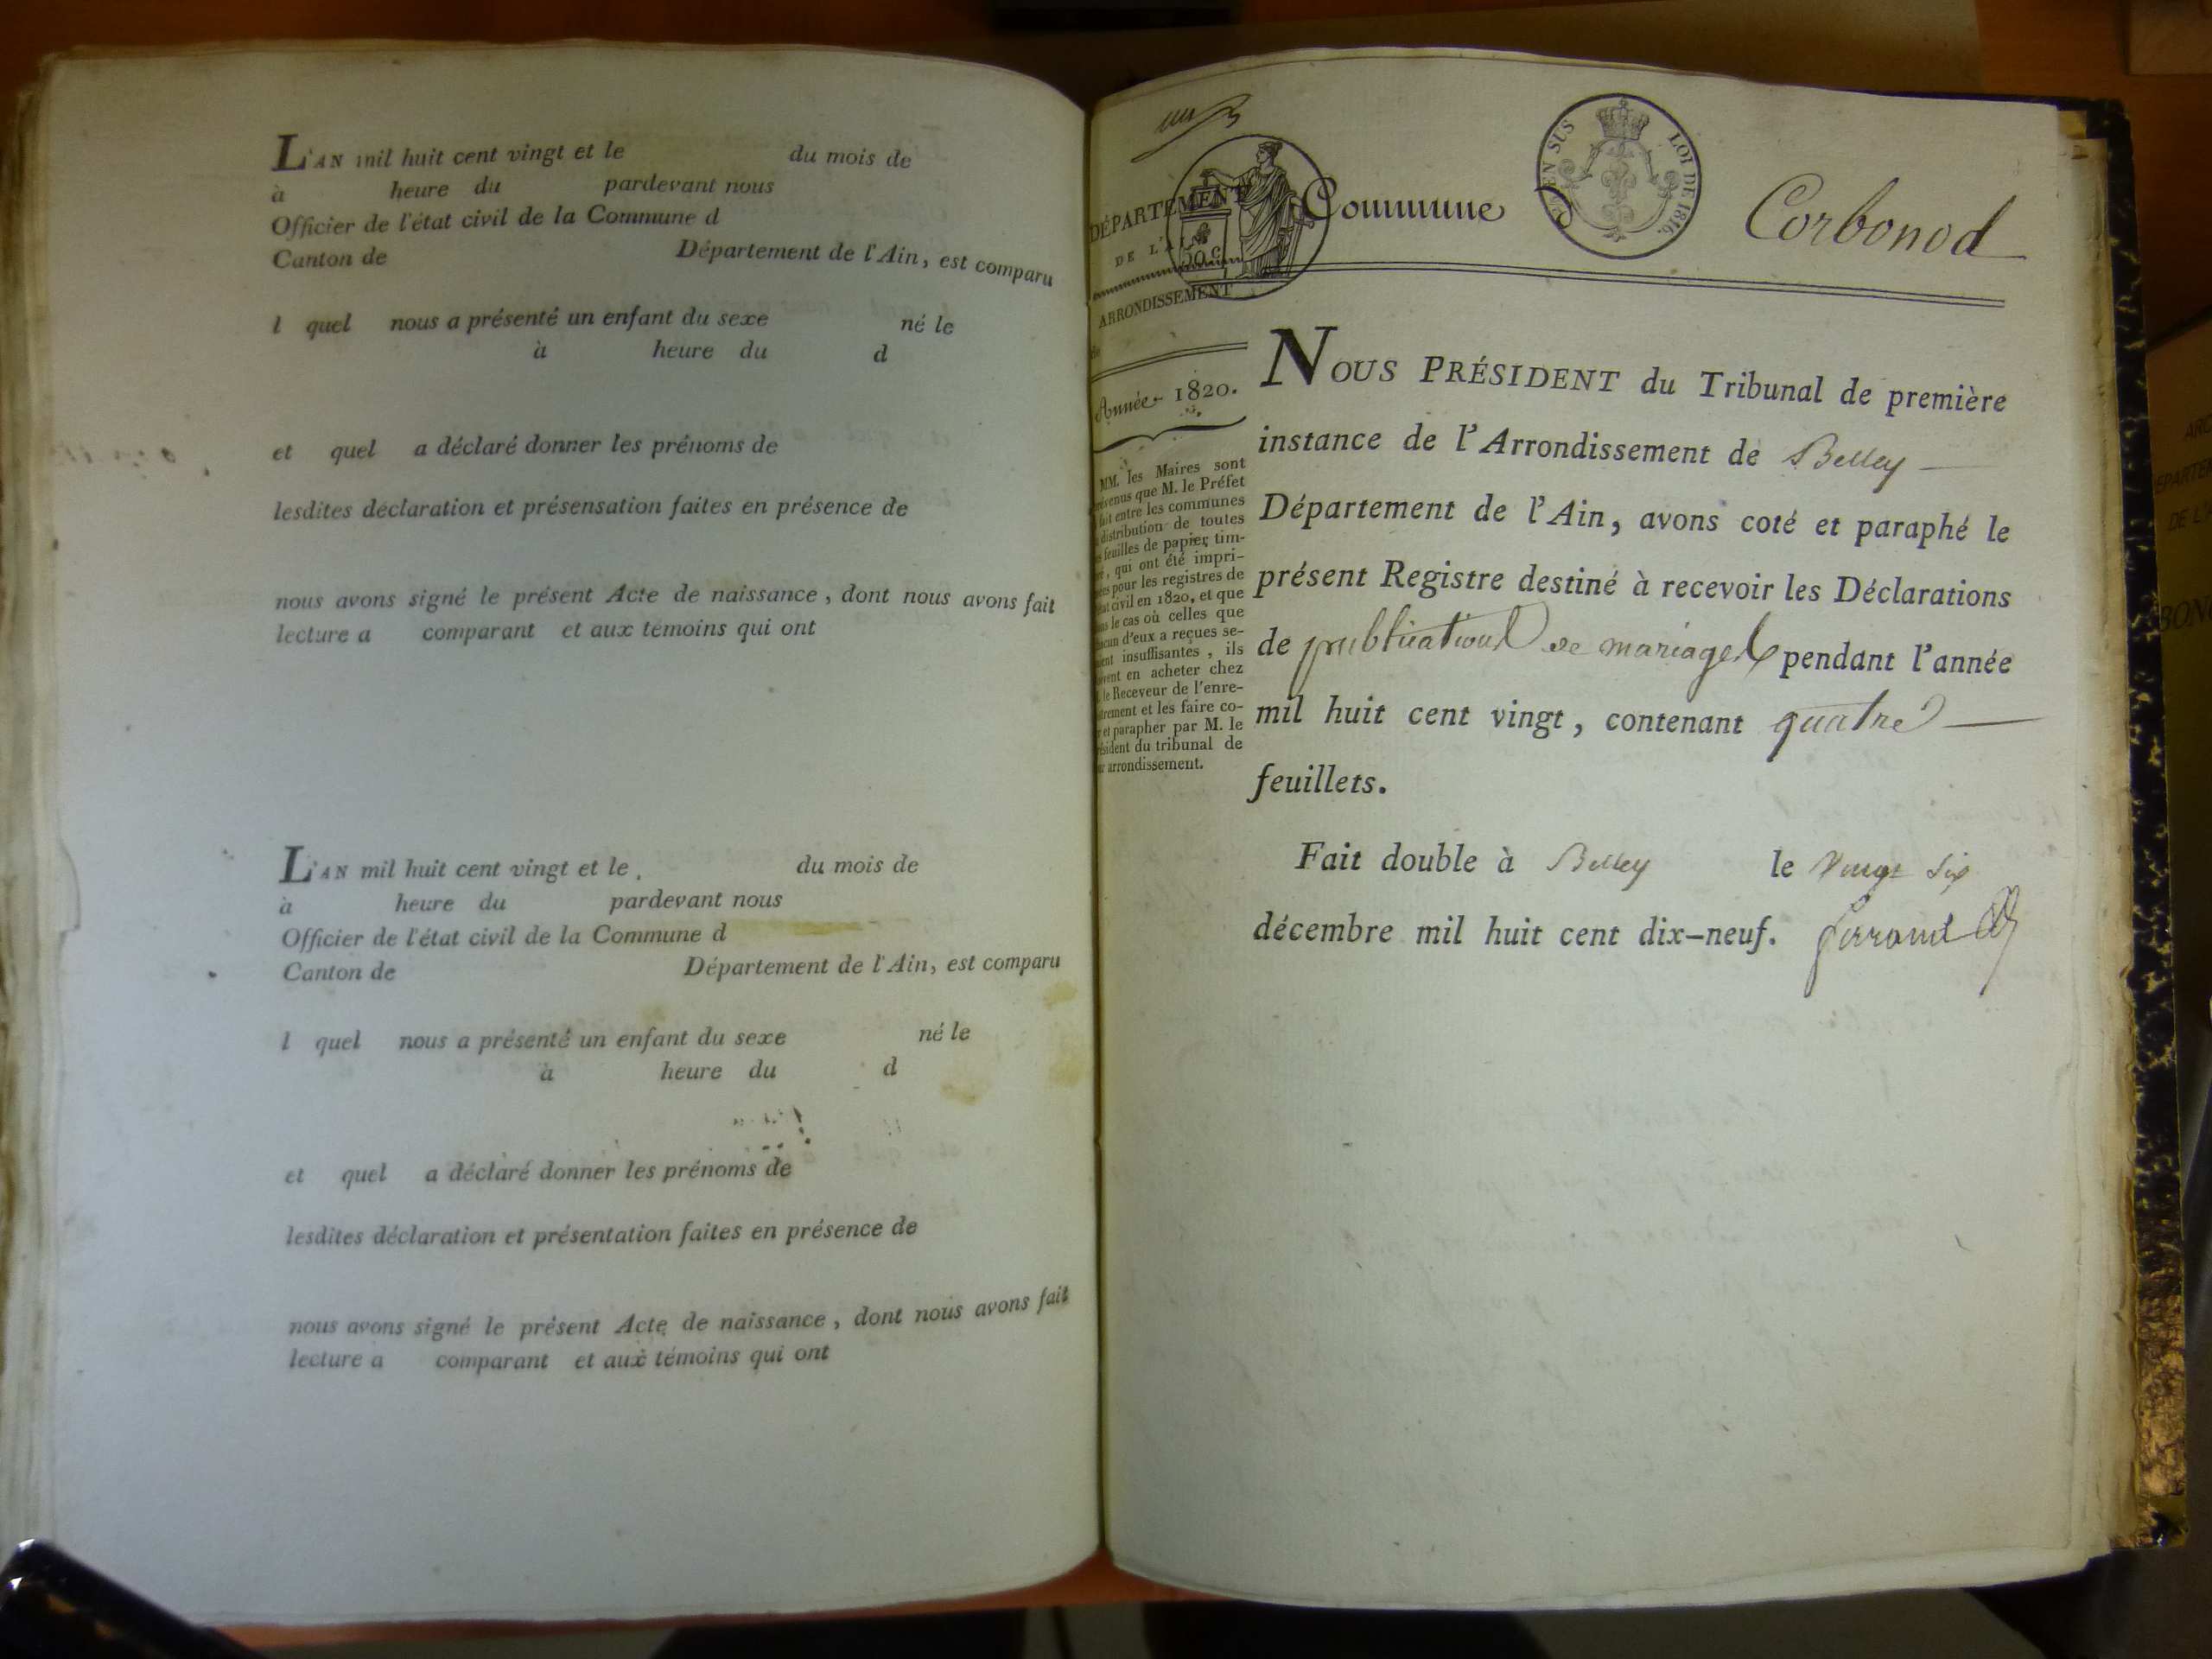 L'AN mil huit cent vingt et le du mois de
à heure du pardevant nous
Officier de l'état civil de la Commune d
Canton de Département de l'Ain, est comparu
l quel nous a présenté un enfant du sexe né le
à heure du d
et quel a déclaré donner les prénoms de
lesdites déclaration et présensation faites en présence de
nous avons signé le présent Acte de naissance, dont nous avons fait
lecture a comparant et aux témoins qui ont
L'AN mil huit cent vingt et le du mois de
à heure du pardevant nous
Officier de l'état civil de la Commune d
Canton de Département de l'Ain, est comparu
l quel nous a présenté un enfant du sexe né le
à heure du d
et quel a déclaré donner les prénoms de
lesdites déclaration et présentation faites en présence de
nous avons signé le présent Acte de naissance, dont nous avons fait
lecture a comparant et aux témoins qui ont
DÉPARTEMENT
DE L'AIN
ARRONDISSEMENT
de
Année 1820.
MM. les Maires sont
prévenus que M. le Préfet
fait entre les communes
distribution de toutes
feuilles de papier tim-
, qui ont été impri-
pour les registres de
civil en 1820, et que
le cas où celles que
d'eux a reçues se-
insuffisantes, ils
en acheter chez
le Receveur de l'enre-
et les faire co-
et parapher par M. le
président du tribunal de
arrondissement.
Commune d Corbonod
EN SUS LOI DE 1816.
NOUS PRÉSIDENT du Tribunal de première
instance de l'Arrondissement de Belley
Département de l'Ain, avons coté et paraphé le
présent Registre destiné à recevoir les Déclarations
de publications de mariages pendant l'année
mil huit cent vingt, contenant quatre
feuillets.
Fait double à Belley le vingt six
décembre mil huit cent dix-neuf.